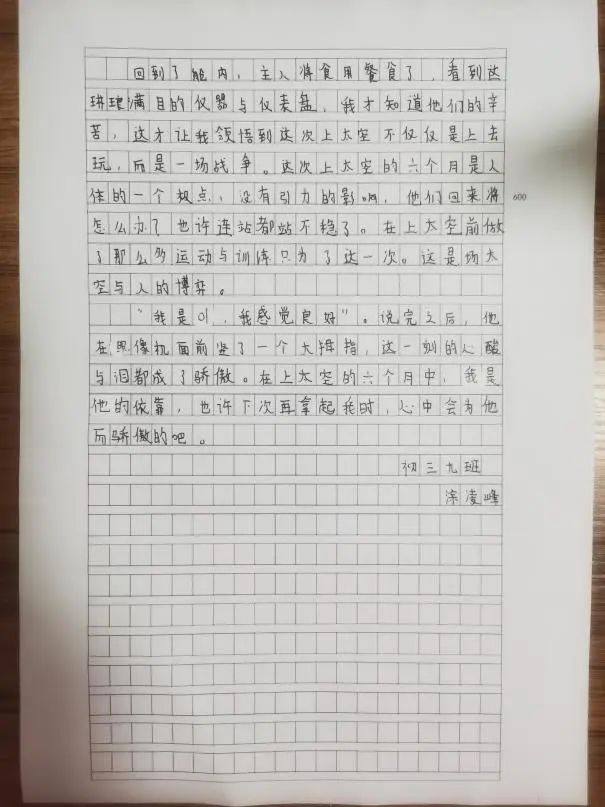 回到了舱内，主人将食用餐食了，看到这
琳琅满目的仪器与仪表盘，我才知道他们的辛
苦，这才让我领悟到这次上太空不仅仅是上去
玩，而是一场战争。这次上太空的六个月是人
体的一个极点，没有引力的影响，他们回来将
怎么办？也许连站都站不稳了。在上太空前做
了那么多运动与训练只为了这一次。这是场太
空与人的博弈。
“我是01，我感觉良好”。说完之后，他
在照像机面前竖了一个大拇指，这一刻的心酸
与泪都成了骄傲。在上太空的六个月中，我是
他的依靠，也许下次再拿起我时，心中会为他
而骄傲的吧。
初三九班
涂凌峰
600